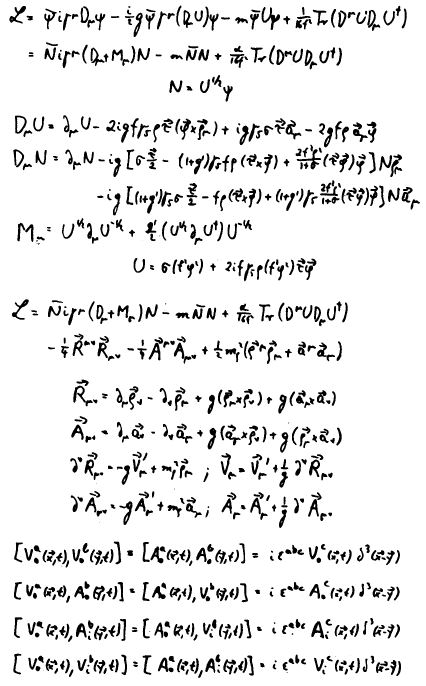 ℒ = ψ̄iγ^μD_μψ − (i/2)g'ψ̄γ^μ(D_μU)ψ − mψ̄Uψ + (1/16f²)Tr(D^μUD_μU†)
= N̄iγ^μ(D_μ+M_μ)N − mN̄N + (1/16f²)Tr(D^μUD_μU†)
N = U^{1/2}ψ
D_μU = ∂_μU − 2igfγ₅ρτ⃗(φ⃗×ρ⃗_μ) + igγ₅στ⃗a⃗_μ − 2gfρa⃗_μφ⃗
D_μN = ∂_μN − ig[στ⃗/2 − (1+g')γ₅fρ(τ⃗×φ⃗) + (2f²ρ²/(1+σ))(τ⃗φ⃗)φ⃗]Nρ⃗_μ
−ig[(1+g')γ₅στ⃗/2 − fρ(τ⃗×φ⃗) + (1+g')γ₅(2f²ρ²/(1+σ))(τ⃗φ⃗)φ⃗]Na⃗_μ
M_μ = U^{1/2}∂_μU^{-1/2} + (g'/2)(U^{1/2}∂_μU†)U^{-1/2}
U = σ(f²φ²) + 2ifγ₅ρ(f²φ²)τ⃗φ⃗
ℒ = N̄iγ^μ(D_μ+M_μ)N − mN̄N + (1/16f²)Tr(D^μUD_μU†)
− ¼R⃗^{μν}R⃗_{μν} − ¼A⃗^{μν}A⃗_{μν} + ½m₀²(ρ⃗^μρ⃗_μ + a⃗^μa⃗_μ)
R⃗_{μν} = ∂_μρ⃗_ν − ∂_νρ⃗_μ + g(ρ⃗_μ×ρ⃗_ν) + g(a⃗_μ×a⃗_ν)
A⃗_{μν} = ∂_μa⃗_ν − ∂_νa⃗_μ + g(a⃗_μ×ρ⃗_ν) + g(ρ⃗_μ×a⃗_ν)
∂^νR⃗_{μν} = −gV⃗_μ' + m₀²ρ⃗_μ ; V⃗_μ = V⃗_μ' + (1/g)∂^νR⃗_{μν}
∂^νA⃗_{μν} = −gA⃗_μ' + m₀²a⃗_μ ; A⃗_μ = A⃗_μ' + (1/g)∂^νA⃗_{μν}
[V₀^a(x⃗,t), V₀^b(y⃗,t)] = [A₀^a(x⃗,t), A₀^b(y⃗,t)] = iε^{abc}V₀^c(x⃗,t)δ³(x⃗−y⃗)
[V₀^a(x⃗,t), A₀^b(y⃗,t)] = [A₀^a(x⃗,t), V₀^b(y⃗,t)] = iε^{abc}A₀^c(x⃗,t)δ³(x⃗−y⃗)
[V₀^a(x⃗,t), A_i^b(y⃗,t)] = [A₀^a(x⃗,t), V_i^b(y⃗,t)] = iε^{abc}A_i^c(x⃗,t)δ³(x⃗−y⃗)
[V₀^a(x⃗,t), V_i^b(y⃗,t)] = [A₀^a(x⃗,t), A_i^b(y⃗,t)] = iε^{abc}V_i^c(x⃗,t)δ³(x⃗−y⃗)